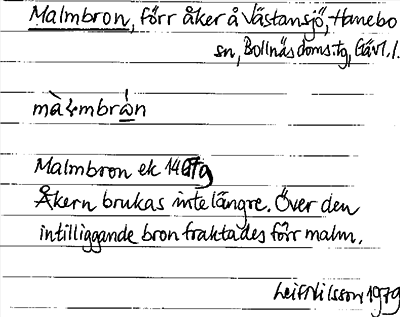 Malmbron, förr åker å Västansjö, Hanebo
sn, Bollnäs doms:tg, Gävl. l.
Malmbron ek
Åkern brukas inte längre. Över den
intilliggande bron fraktades förr malm.
Leif Nilsson 1979